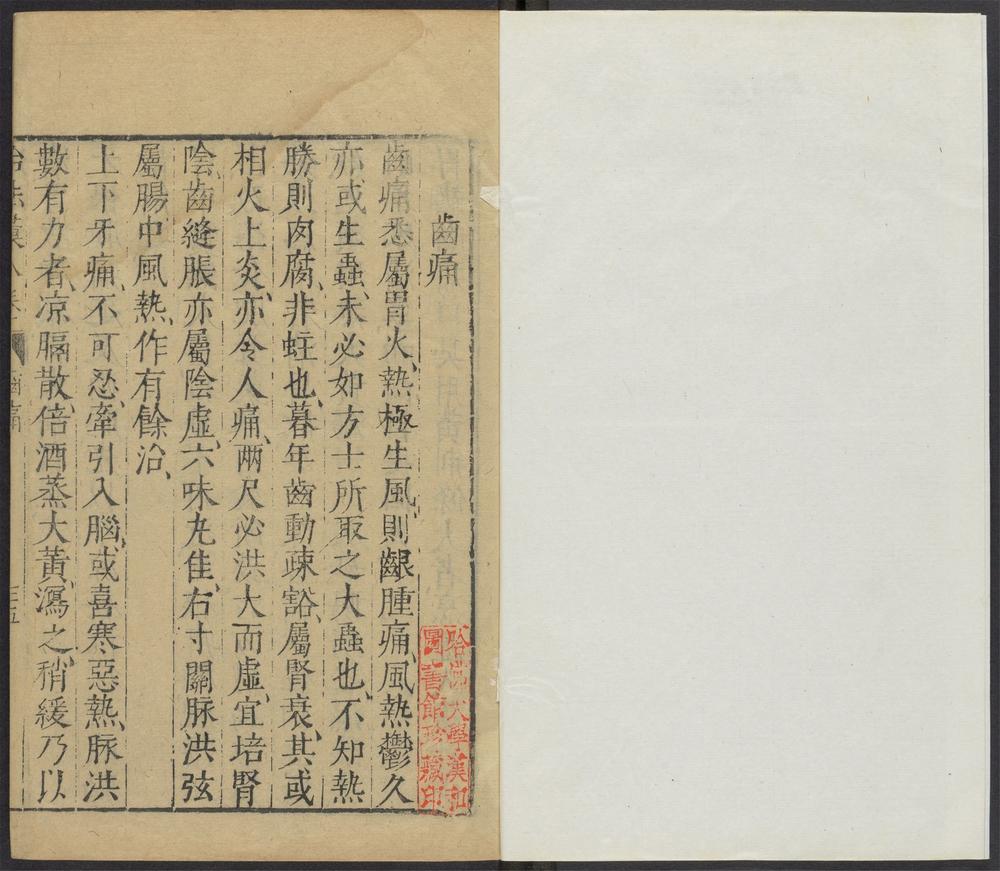 齒痛
齒痛悉屬胃火、熱極生風、則齦腫痛、風熱鬱久
亦或生蟲、未必如方士所取之大蟲也、不知熱
勝則肉腐、非蛀也、暮年齒動疎豁、屬腎衰、其或
相火上炎、亦令人痛、兩尺必洪大而虛、宜培腎
陰、齒縫脹亦屬陰虛、六味丸佳、右寸關脉洪弦
屬腸中風熱、作有餘治、
上下牙痛、不可忍、牽引入腦、或喜寒惡熱、脉洪
數有力者、凉膈散、倍酒蒸大黃、瀉之、稍緩乃以
齒痛
哈佛大學漢和
圖書館珍藏印